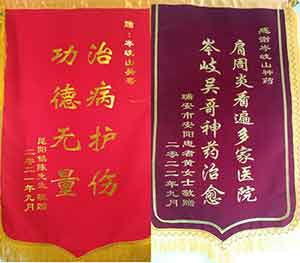 赠：岑岐山吴哥
治病护伤
功德无量
昆阳镇陈先生敬赠
二零二一年九月
感谢岑岐山神药
肩周炎看遍多家医院
岑岐吴哥神药治愈
瑞安市安阳患者黄女士敬赠
二零二二年九月